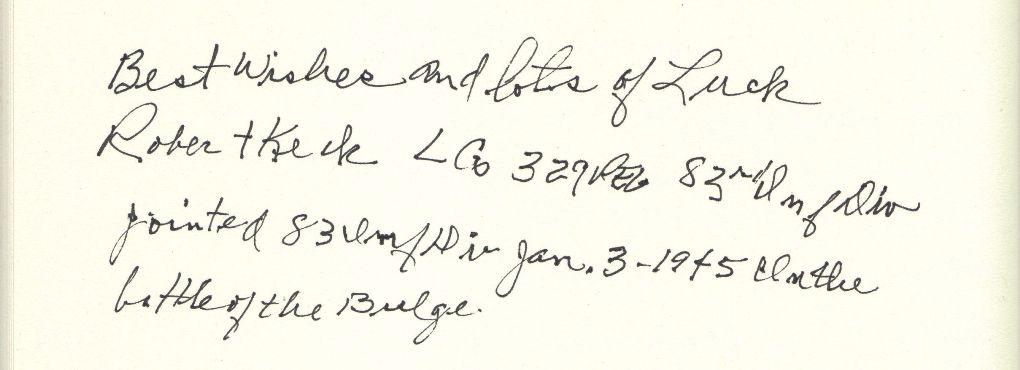 Best Wishes and lots of Luck
Robert Keck L Co 329 REG 83rd Inf Div
jointed 83 Inf Div Jan. 3-1945 In the
battle of the Bulge.